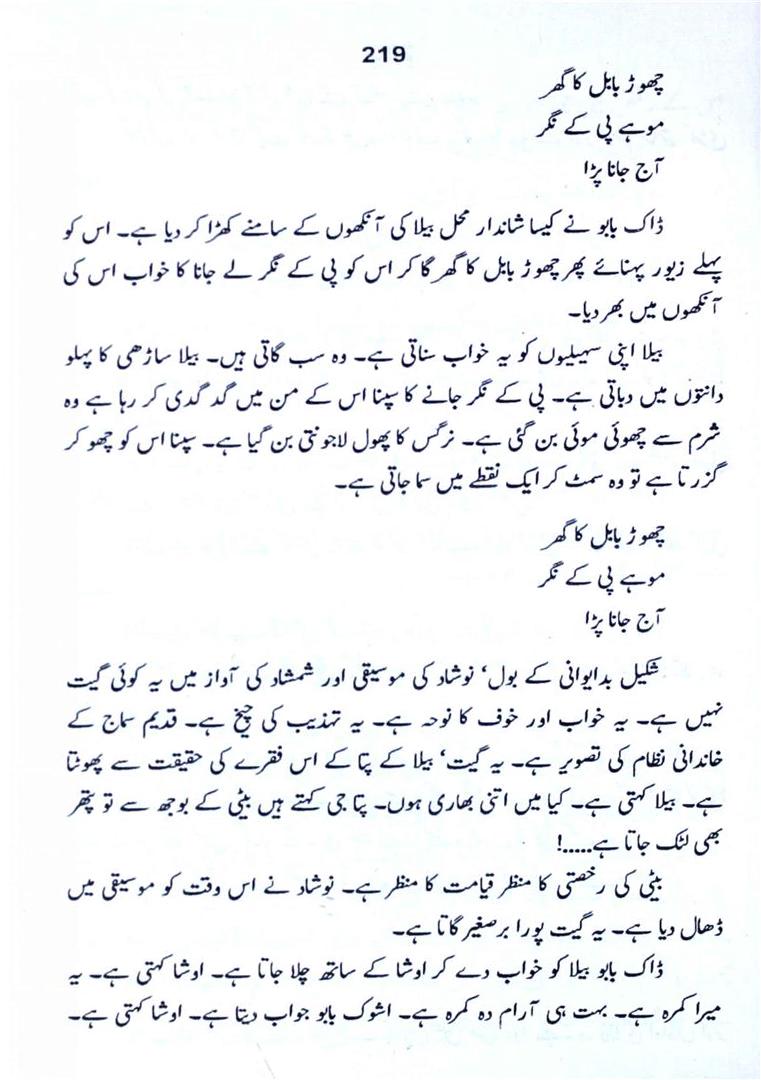 219
چھوڑ بابل کا گھر
موہے پی کے نگر
آج جانا پڑا
ڈاک بابو نے کیسا شاندار محل بیلا کی آنکھوں کے سامنے کھڑا کر دیا ہے۔ اس کو
پہلے زیور پہنائے پھر چھوڑ بابل کا گھر گا کر اس کو پی کے نگر لے جانا کا خواب اس کی
آنکھوں میں بھر دیا۔
بیلا اپنی سہیلیوں کو یہ خواب سناتی ہے۔ وہ سب گاتی ہیں۔ بیلا ساڑھی کا پہلو
دانتوں میں دباتی ہے۔ پی کے نگر جانے کا سپنا اس کے من میں گد گدی کر رہا ہے وہ
شرم سے چھوئی موئی بن گئی ہے۔ نرگس کا پھول لاجونتی بن گیا ہے۔ سپنا اس کو چھو کر
گزرتا ہے تو وہ سمٹ کر ایک نقطے میں سما جاتی ہے۔
چھوڑ بابل کا گھر
موہے پی کے نگر
آج جانا پڑا
شکیل بدایوانی کے بول‘ نوشاد کی موسیقی اور شمشاد کی آواز میں یہ کوئی گیت
نہیں ہے۔ یہ خواب اور خوف کا نوحہ ہے۔ یہ تہذیب کی چیخ ہے۔ قدیم سماج کے
خاندانی نظام کی تصویر ہے۔ یہ گیت‘ بیلا کے پتا کے اس فقرے کی حقیقت سے پھوٹتا
ہے۔ بیلا کہتی ہے۔ کیا میں اتنی بھاری ہوں۔ پتا جی کہتے ہیں بیٹی کے بوجھ سے تو پتھر
بھی لٹک جاتا ہے.....!
بیٹی کی رخصتی کا منظر قیامت کا منظر ہے۔ نوشاد نے اس وقت کو موسیقی میں
ڈھال دیا ہے۔ یہ گیت پورا برصغیر گاتا ہے۔
ڈاک بابو بیلا کو خواب دے کر اوشا کے ساتھ چلا جاتا ہے۔ اوشا کہتی ہے۔ یہ
میرا کمرہ ہے۔ بہت ہی آرام دہ کمرہ ہے۔ اشوک بابو جواب دیتا ہے۔ اوشا کہتی ہے۔